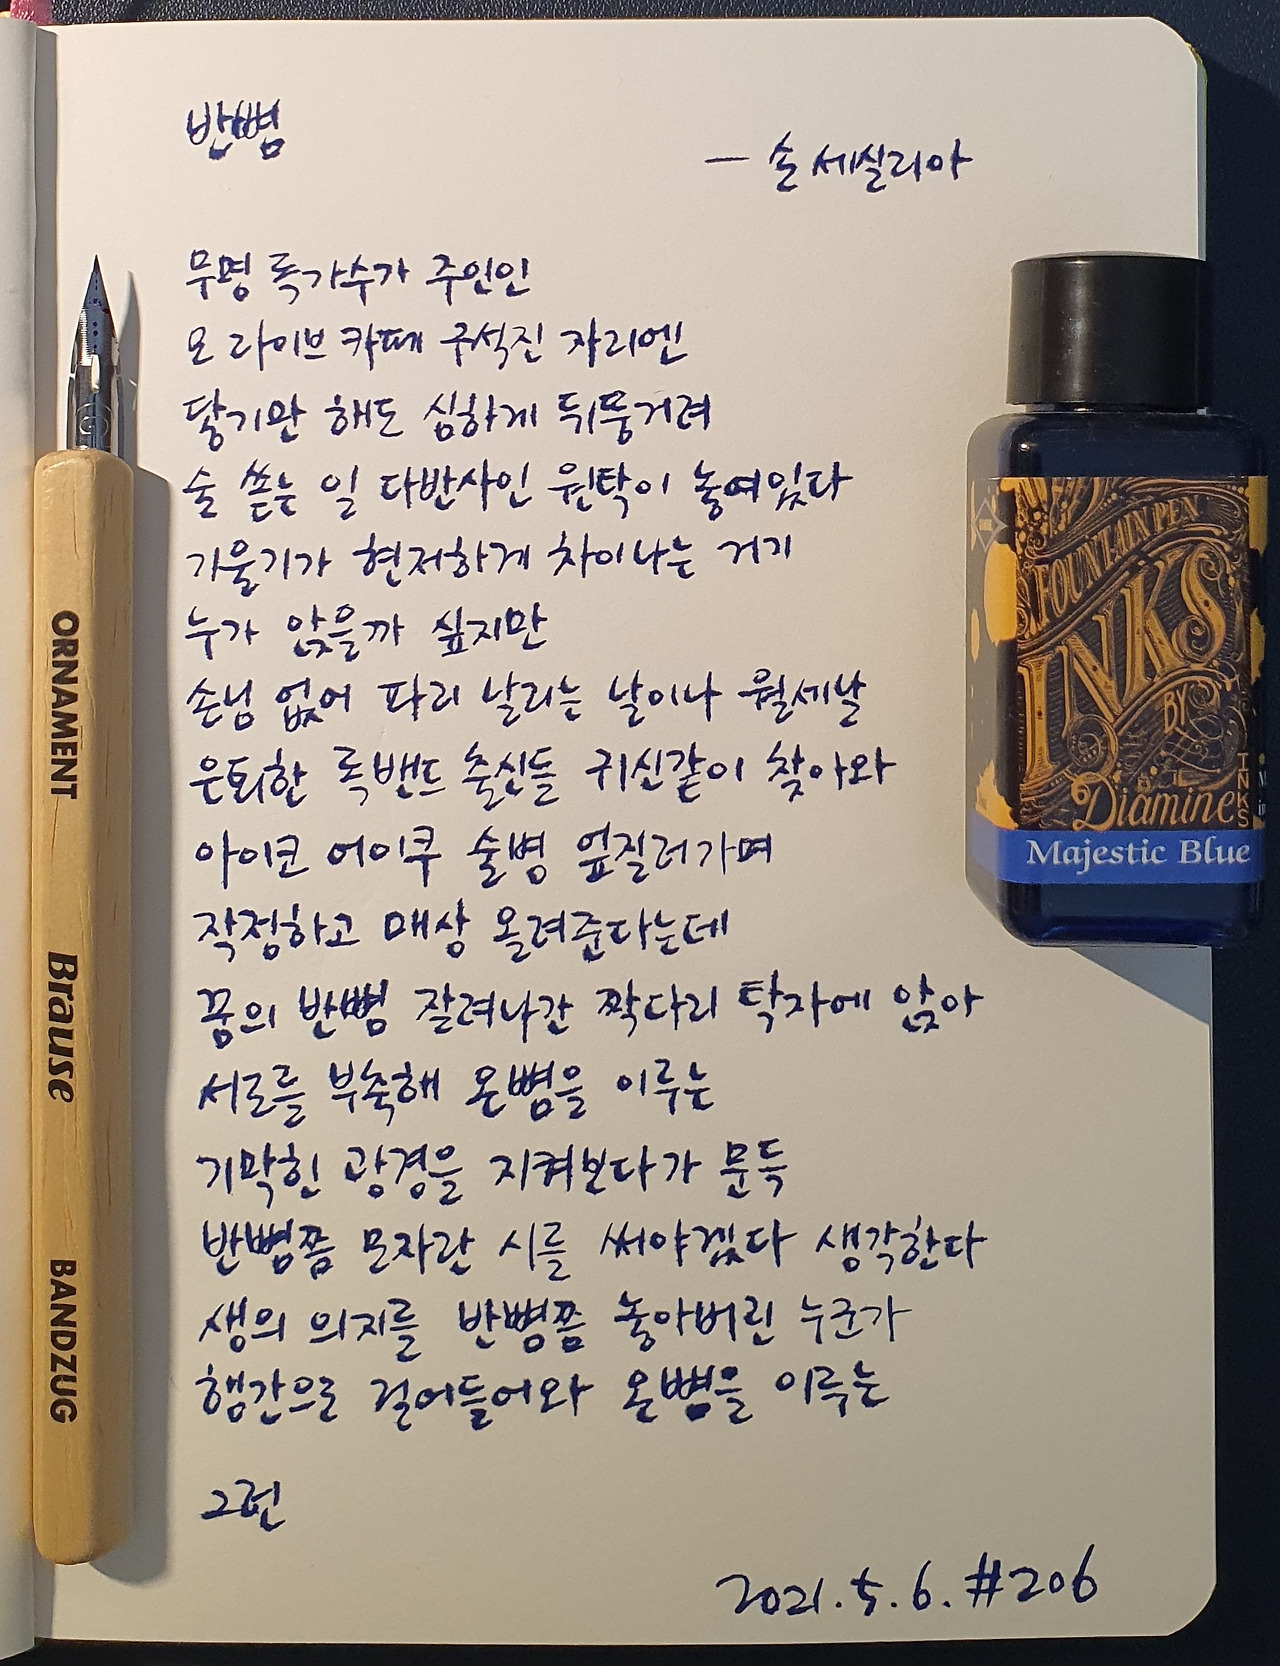 반뼘
— 손세실리아
무명 록가수가 주인인
모 라이브 카페 구석진 자리엔
닿기만 해도 심하게 뒤뚱거려
술 쏟는 일 다반사인 원탁이 놓여있다
기울기가 현저하게 차이나는 거기
누가 앉을까 싶지만
손님 없어 파리 날리는 날이나 월세날
은퇴한 록밴드 출신들 귀신같이 찾아와
아이코 어이쿠 술병 엎질러가며
작정하고 매상 올려준다는데
꿈의 반뼘 잘려나간 짝다리 탁자에 앉아
서로를 부축해 온뼘을 이루는
기막힌 광경을 지켜보다가 문득
반뼘쯤 모자란 시를 써야겠다 생각한다
생의 의지를 반뼘쯤 놓아버린 누군가
행간으로 걸어들어와 온뼘을 이루는
그런
2021.5.6. #206
ORNAMENT Brause BANDZUG
FOUNTAIN PEN
INKS
BY
Diamine
INKS
Majestic Blue